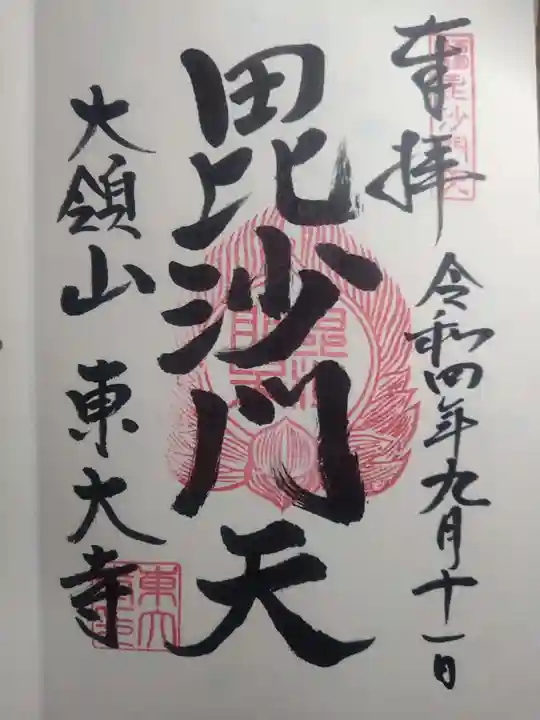 奉拝
令和四年九月十一日
毘沙門天
大領山 東大寺